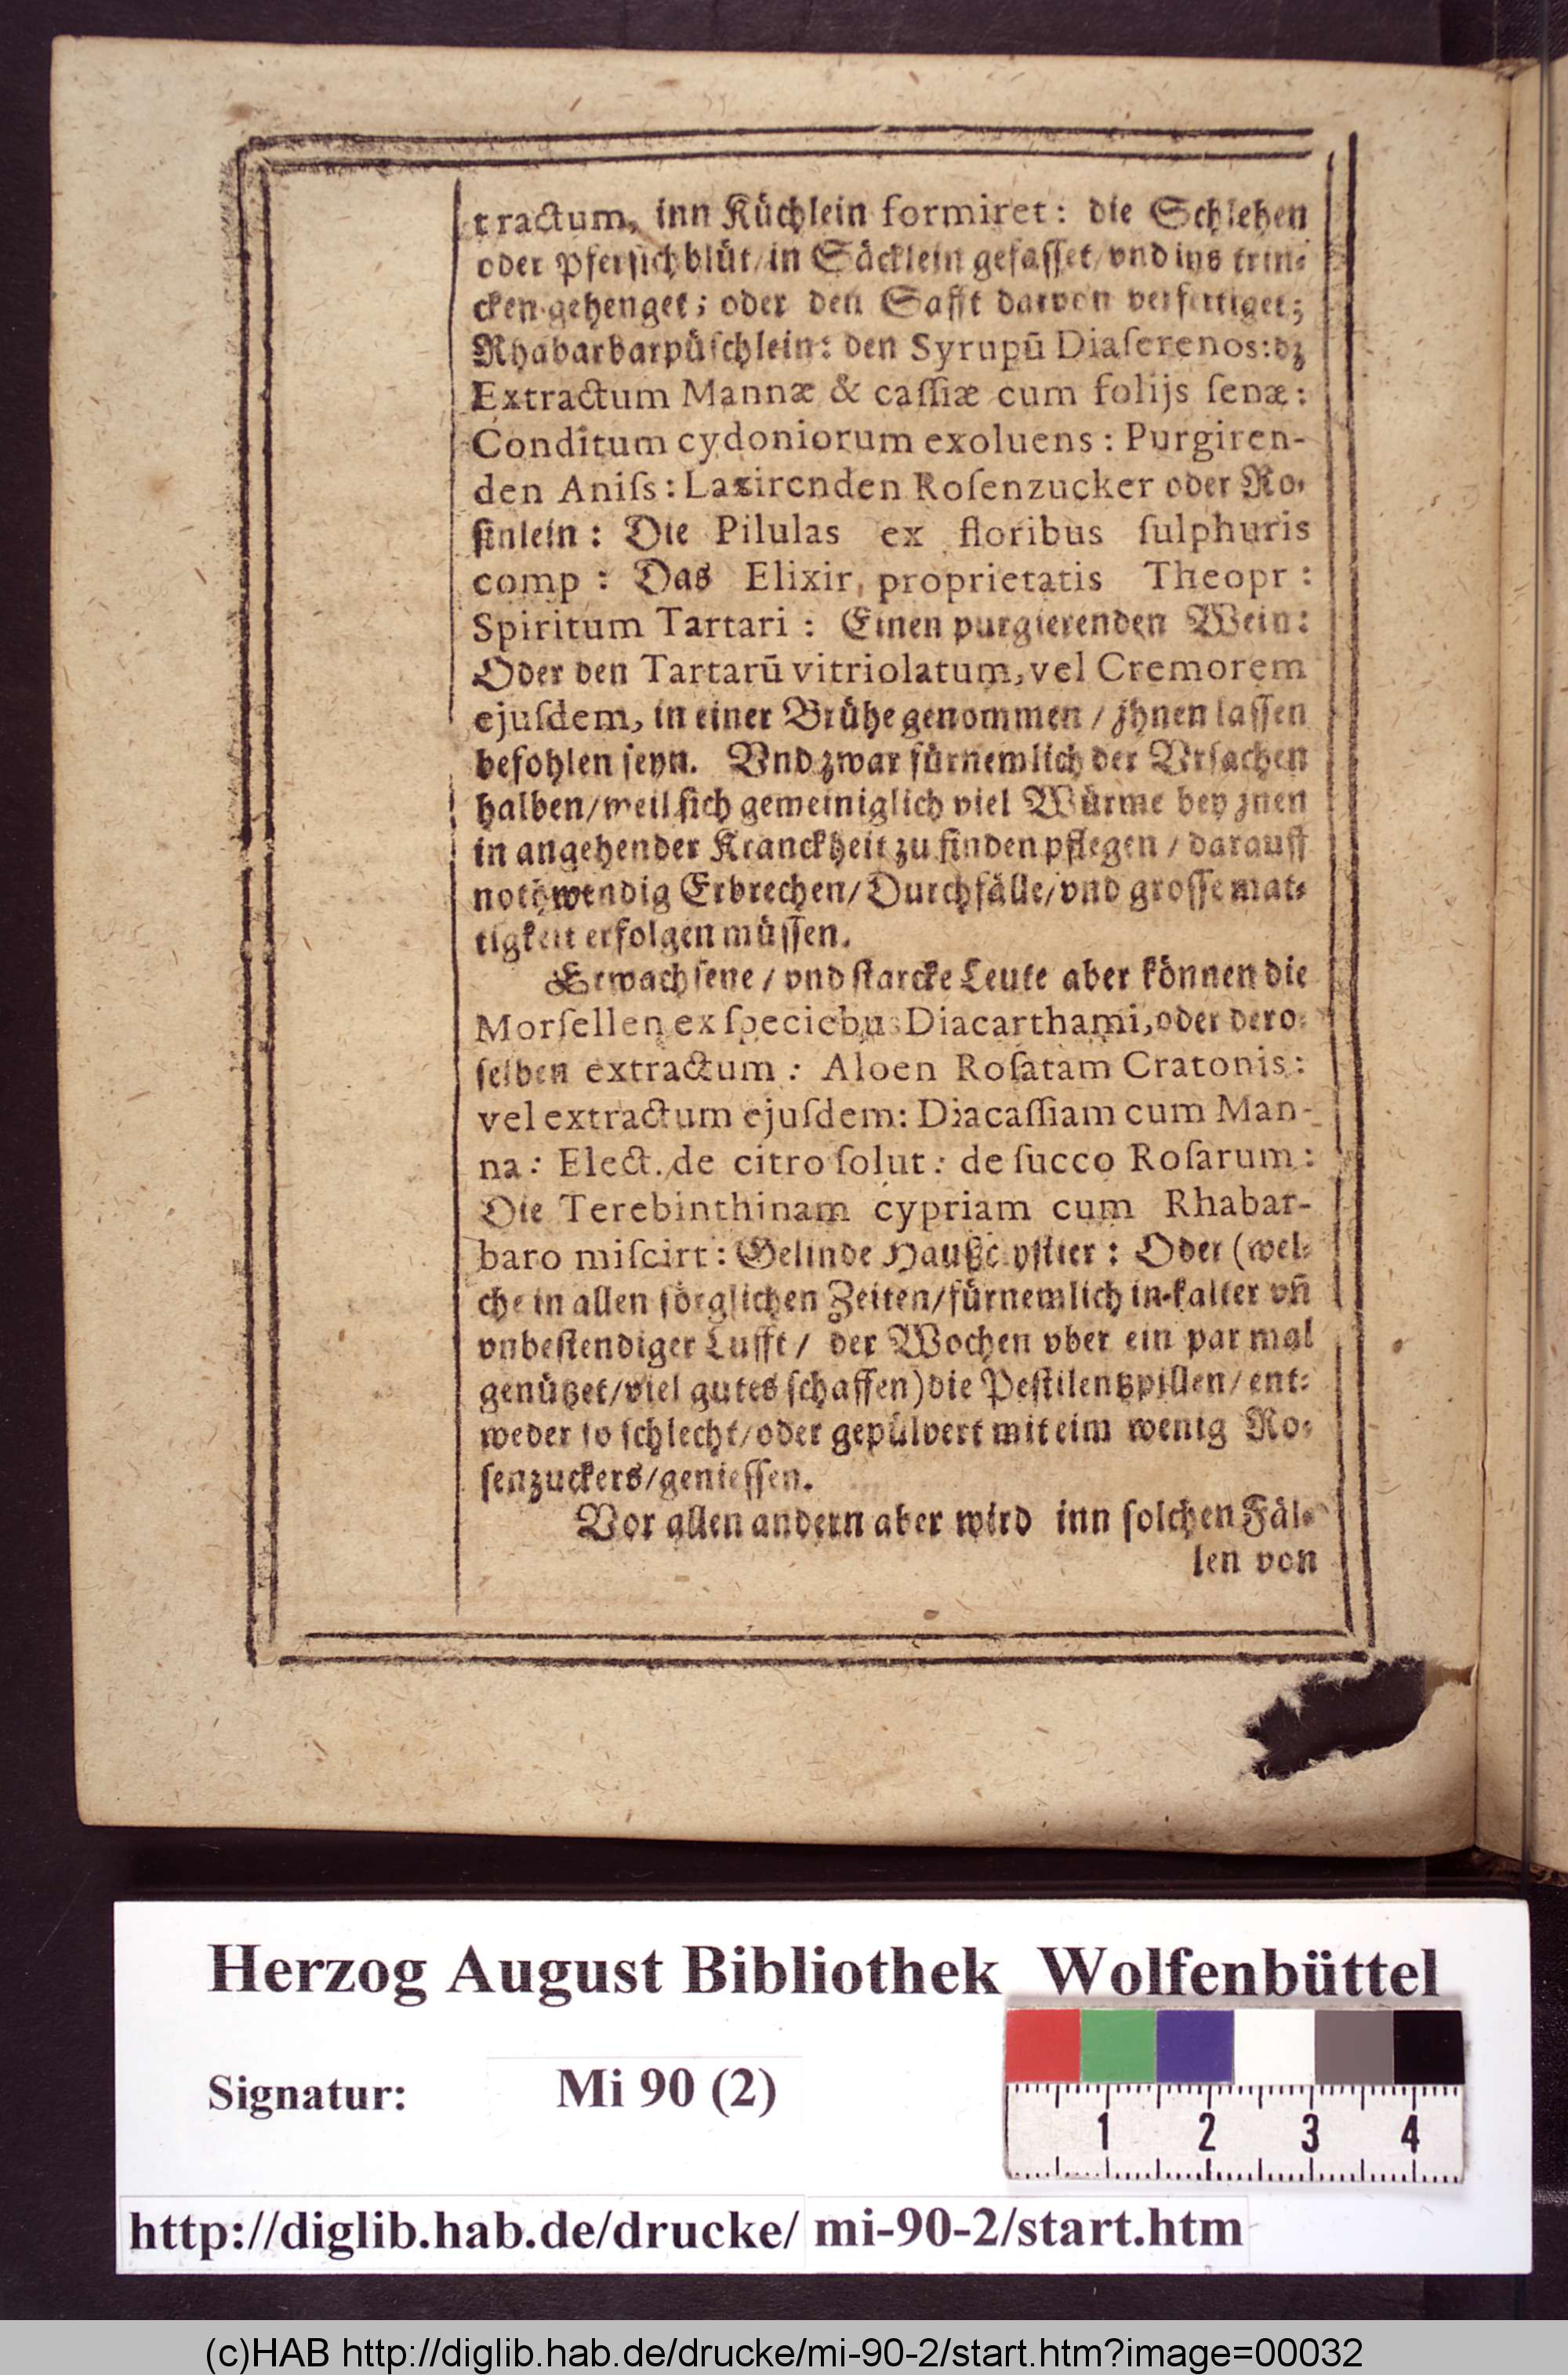 tractum, inn Küchlein formiret: die Schlehen
oder Pfersichblüt/in Säcklein gefasset/vnd ins trin-
cken gehenget; oder den Safft darvon verfertiget;
Rhabarbarpüschlein: den Syrupū Diaſerenos:dz
Extractum Mannæ & caſſiæ cum folijs ſenæ:
Conditum cydoniorum exoluens: Purgiren-
den Aniſs: Laxirenden Roſenzucker oder Ro-
sinlein: Die Pilulas ex floribus ſulphuris
comp: Das Elixir proprietatis Theopr:
Spiritum Tartari: Einen purgierenden Wein:
Oder den Tartarū vitriolatum, vel Cremorem
ejuſdem, in einer Brühe genommen / jhnen lassen
befohlen seyn. Vnd zwar fürnemlich der Vrsachen
halben/weil sich gemeiniglich viel Würme bey jnen
in angehender Kranckheit zu finden pflegen / darauff
nothwendig Erbrechen/Durchfälle/vnd grosse mat-
tigkeit erfolgen müssen.
Erwachsene / vnd starcke Leute aber können die
Morſellen ex ſpeciebus Diacarthami, oder dero-
selben extractum: Aloen Roſatam Cratonis:
vel extractum ejuſdem: Diacaſſiam cum Man-
na: Elect. de citro ſolut: de ſucco Roſarum:
Die Terebinthinam cypriam cum Rhabar-
baro miſcirt: Gelinde Haußclystier: Oder (wel-
che in allen sörglichen Zeiten/fürnemlich in kalter vn̄
vnbestendiger Lufft / der Wochen vber ein par mal
genützet/viel gutes schaffen) die Pestilentzpillen/ent-
weder so schlecht/oder gepülvert mit eim wenig Ro-
senzuckers/geniessen.
Vor allen andern aber wird inn solchen Fäl-
len von
Herzog August Bibliothek Wolfenbüttel
Signatur: Mi 90 (2)
1 2 3 4
http://diglib.hab.de/drucke/ mi-90-2/start.htm
(c)HAB http://diglib.hab.de/drucke/mi-90-2/start.htm?image=00032